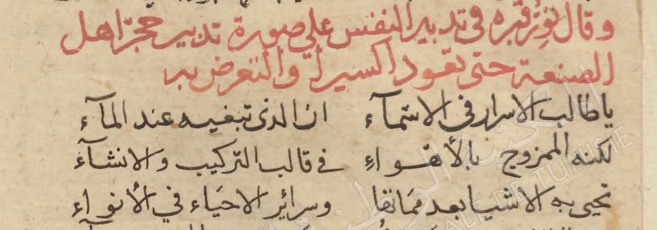 وقال نور قبره في تدبير النفس على صورة تدبير حجر اهل
الصنعة حتى تعود اكسيرا والتعرض به
ياطالب الاسرار في الاسمآء ان الذى تبغيه عند المآء
لكنه الممزوج بالأهـواء في قالب التركيب والانشآء
تحيى به الاشيا بعد مماتها وسرائر الاحياء في الأنواء